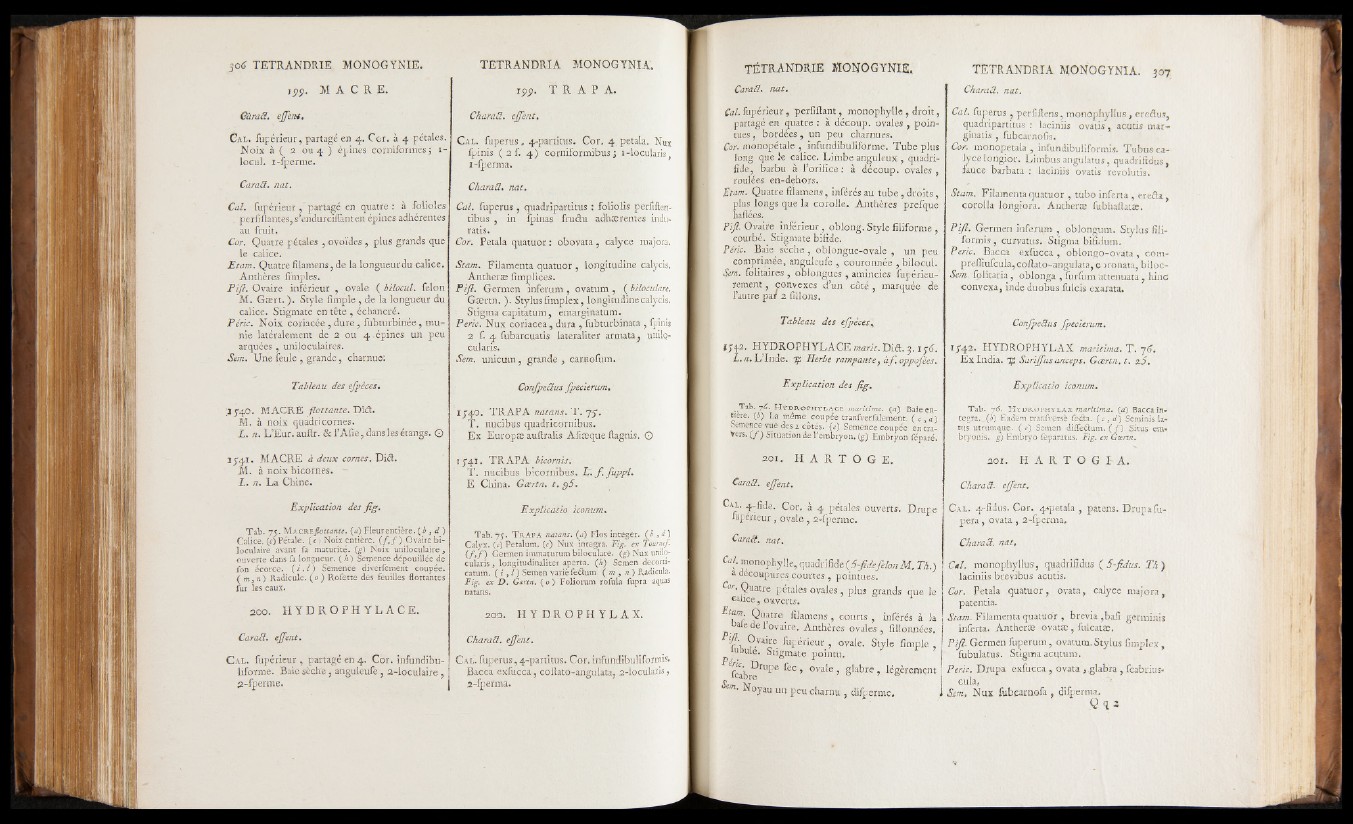 306 TETRANDRIE MONOGYNIE.
199. MACRE.
Caract. essent.
CAL. supérieur, partagé en 4. Cor. à 4 pétales.
Noix à ( 2 ou 4 ) épines corniformes; 1-
locul. 1-sperme.
Caract. nat.
Cal. supérieur, partagé en quatre : à folioles
persistantes, s'endurcissant en épines adhérentes
au fruit.
Cor. Quatre pétales, ovoïdes, plus grands que
le calice.
Etam. Quatre filamens, de la longueur du calice.
Anthères simples.
Pist. Ovaire inférieur, ovale ( bilocul. selon
M. Gært. ). Style simple, de la longueur du
calice. Stigmate en tête, échancré.
Péric. Noix coriacée, dure, subturbinée, mu-
nie latéralement de 2 ou 4 épines un peu
arquées, uniloculaires.
Sem. Une seule, grande, charnue.
Tableau des espèces.
1540. MACRE flottante. Dict.
M. à noix quadricornes.
L. n. L'Eur. austr. & l'Asie, dans les étangs. ⊙
1541. MACRE à deux cornes. Dict.
M. à noix bicornes.
L. n. La Chine.
Explication des fig.
Tab. 75. MACRE flottante. (a) Fleur entière. (b, d)
Calice. (c) Pétale. (e) Noix entière. (f, f) Ovaire bi-
loculaire avant sa maturité. (g) Noix uniloculaire,
ouverte dans sa longueur. (h) Semence dépouillée de
son écorce. (i, l) Semence diversément coupée.
(m, n) Radicule. (o) Rosette des feuilles flottantes
sur les eaux.
200. HYDROPHYLACE.
Caract. essent.
CAL. supérieur, partagé en 4. Cor. infundibu-
liforme. Baie sèche, anguleuse, 2-loculaire,
2-sperme.
TETRANDRIA MONOGYNIA.
199. TRAPA.
Charact. essent.
CAL. superus, 4-partitus. Cor. 4 petala. Nux
spinis ( 2 s. 4 ) corniformibus; 1-locularis,
1-sperma.
Charact. nat.
Cal. superus, quadripartitus : foliolis persisten-
tibus, in spinas fructu adhærentes indu-
ratis.
Cor. Petala quatuor : obovata, calyce majora.
Stam. Filamenta quatuor, longitudine calycis.
Antheræ simplices.
Pist. Germen inferum, ovatum, ( biloculare.
Gærtn. ). Stylus simplex, longitudine calycis.
Stigma capitatum, emarginatum.
Peric. Nux coriacea, dura, subturbinata, spinis
2 s. 4 subarcuatis lateraliter armata, unilo-
cularis.
Sem. unicum, grande, carnosum.
Conspectus specierum.
1540. TRAPA natans. T. 75.
T. nucibus quadricornibus.
Ex Europæ australis Asiæque stagnis. ⊙
1541. TRAPA bicornis.
T. nucibus bicornibus. L. f. suppl.
E China. Gærtn. t. 95.
Explicatio iconum.
Tab. 75. TRAPA natans. (a) Flos integer. (b, d)
Calyx. (c) Petalum. (e) Nux integra. Fig. ex Tournef.
(f, f) Germen immaturum biloculare. (g) Nux unilo-
cularis, longitudinaliter aperta. (h) Semen decorti-
catum. (i, l) Semen variè sectum. (m, n) Radicula.
Fig. ex D. Gærtn. (o) Foliorum rosula supra aquas
natans.
200. HYDROPHYLAX.
Charact. essent.
CAL. superus, 4-partitus. Cor. infundibuliformis.
Bacca exsucca, costato-angulata, 2-locularis,
2-sperma.
TÉTRANDRIE MONOGYNIE.
Caract. nat.
Cal. supérieur, persistant, monophylle, droit,
partagé en quatre : à découp. ovales, poin-
tues, bordées, un peu charnues.
Cor. monopétale, infundibuliforme. Tube plus
long que le calice. Limbe anguleux, quadri-
fide, barbu à l'orifice : à découp. ovales,
roulées en-dehors.
Etam. Quatre filamens, insérés au tube, droits,
plus longs que la corolle. Anthères presque
hastées.
Pist. Ovaire inférieur, oblong. Style filiforme,
courbé. Stigmate bifide.
Péric. Baie sèche, oblongue-ovale, un peu
comprimée, anguleuse, couronnée, bilocul.
Sem. solitaires, oblongues, amincies supérieu-
rement, convexes d'un côté, marquée de
l'autre par 2 sillons.
Tableau des espèces.
1542. HYDROPHYLACE marit. Dict. 3. 156.
L. n. L'Inde. ♃ Herbe rampante, à f. opposées.
Explication des fig.
Tab. 76. HYDROPHYLACE maritime. (a) Baie en-
tière. (b) La même coupée transversalement. (c, d)
Semence vue des 2 côtés. (e) Semence coupée en tra-
vers. (f) Situation de l'embryon. (g) Embryon séparé.
201. HARTOGE.
Caract. essent.
CAL. 4-fide. Cor. à 4 pétales ouverts. Drupe
supérieur, ovale, 2-sperme.
Caract. nat.
Cal. monophylle, quadrifide ( 5-fide selon M. Th. )
à découpures courtes, pointues.
Cor. Quatre pétales ovales, plus grands que le
calice, ouverts.
Etam. Quatre filamens, courts, insérés à la
base de l'ovaire. Anthères ovales, sillonnées.
Pist. Ovaire supérieur, ovale. Style simple,
subulé. Stigmate pointu.
Péric. Drupe sec, ovale, glabre, légèrement
scabre
Sem. Noyau un peu charnu, disperme.
TETRANDRIA MONOGYNIA. 307
Charact. nat.
Cal. superus, persistens, monophyllus, erectus,
quadripartitus : laciniis ovatis, acutis mar-
ginatis, subcarnosis.
Cor. monopetala, infundibuliformis. Tubus ca-
lyce longior. Limbus angulatus, quadrifidus,
fauce barbata : laciniis ovatis revolutis.
Stam. Filamenta quatuor, tubo inserta, erecta,
corolla longiora. Antheræ subhastatæ.
Pist. Germen inferum, oblongum. Stylus fili-
formis, curvatus. Stigma bifidum.
Peric. Bacca exsucca, oblongo-ovata, com-
pressiuscula, costato-angulata, coronata, biloc.
Sem. solitaria, oblonga, sursum attenuata, hinc
convexa, inde duobus sulcis exarata.
Conspectus specierum.
1542. HYDROPHYLAX maritima. T. 76.
Ex India. ♃ Sarissus anceps. Gærtn. t. 25.
Explicatio iconum.
Tab. 76. HYDROPHYLAX maritima. (a) Bacca in-
tegra. (b) Eadem transversè secta. (c, d) Seminis la-
tus utrumque. (e) Semen dissectum. (f) Situs em-
bryonis. g) Embryo separatus. Fig. ex Gærtn.
201. HARTOGIA.
Charact. essent.
CAL. 4-fidus. Cor. 4-petala, patens. Drupa su-
pera, ovata, 2-sperma.
Charact. nat.
Cal. monophyllus, quadrifidus ( 5-fidus. Th )
laciniis brevibus acutis.
Cor. Petala quatuor, ovata, calyce majora,
patentia.
Stam. Filamenta quatuor, brevia, basi germinis
inserta. Antheræ ovatæ, sulcatæ.
Pist. Germen superum, ovatum. Stylus simplex,
subulatus. Stigma acutum.
Peric. Drupa exsucca, ovata, glabra, scabrius-
cula,
Sem. Nux subcarnosa, disperma.
Qq 2